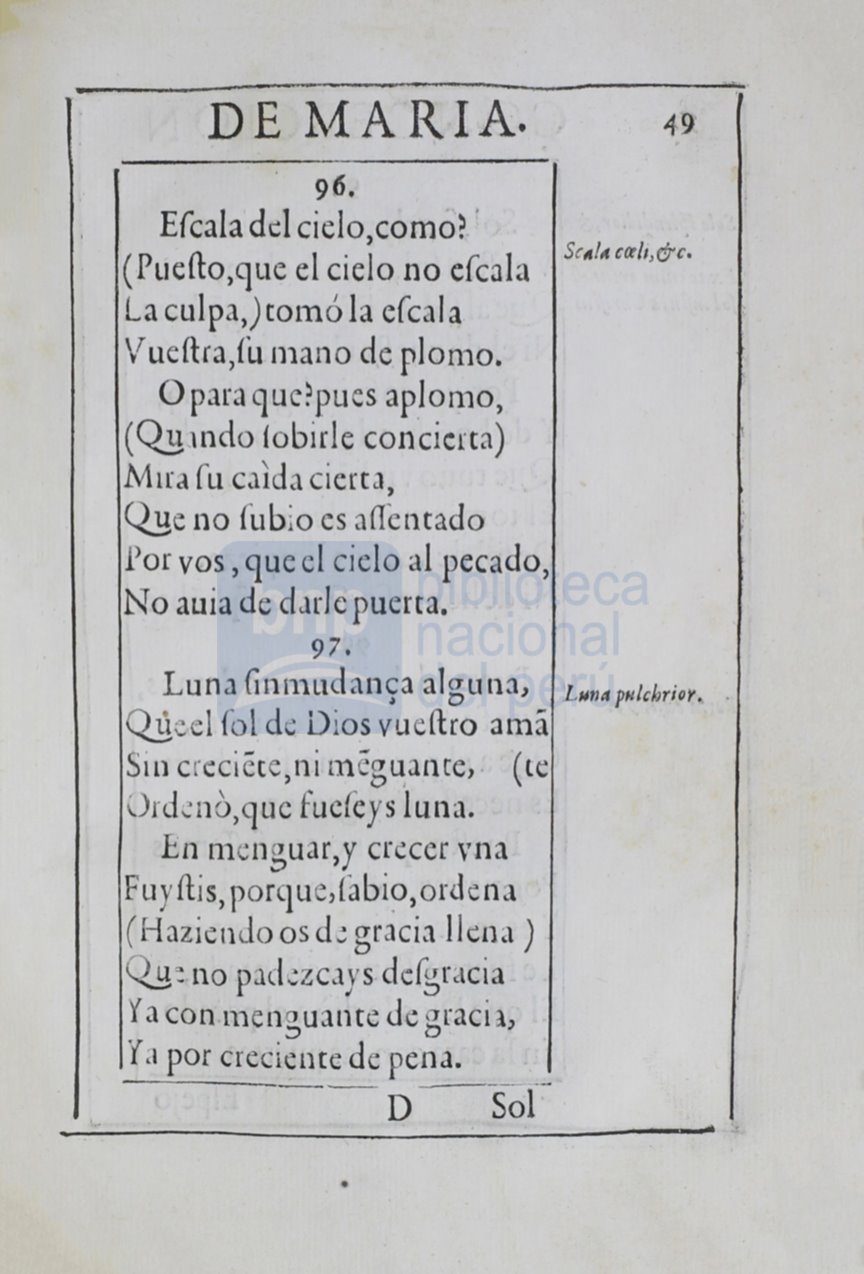 DE MARIA. 49
96.
Eſcala del cielo,como?
Scala cœli,&c.
(Pueſto,que el cielo no eſcala
La culpa,)tomó la eſcala
Vueſtra,ſu mano de plomo.
O para que?pues aplomo,
(Quando ſobirle concierta)
Mira ſu caìda cierta,
Que no ſubio es aſſentado
Por vos,que el cielo al pecado,
No auia de darle puerta.
97.
Luna ſinmudança alguna,
Luna pulchrior.
Que el ſol de Dios vueſtro amã
Sin creciẽte,ni mẽguante, (te
Ordenò,que fueſeys luna.
En menguar,y crecer vna
Fuyſtis,porque,ſabio,ordena
(Haziendo os de gracia llena )
Que no padezcays deſgracia
Ya con menguante de gracia,
Ya por creciente de pena.
D Sol
bnp biblioteca
nacional
del perú